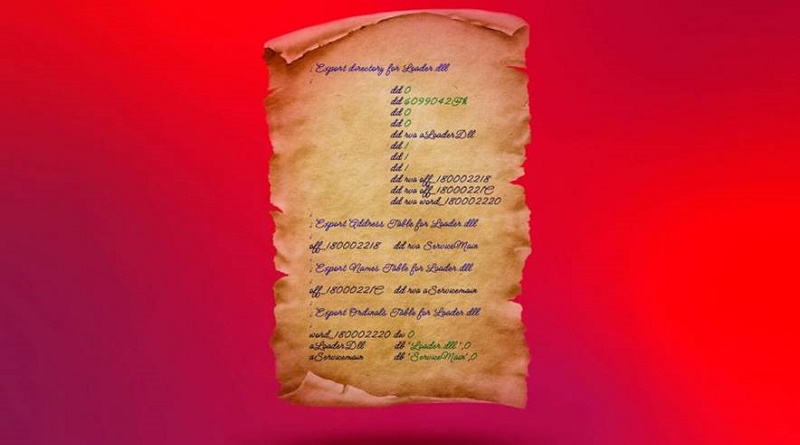 ; Export directory for Loader.dll
;
dd 0
dd 60990429h
dd 0
dd 0
dd rva aLoaderDll
dd 1
dd 1
dd 1
dd rva off_180002218
dd rva off_18000221C
dd rva word_180002220
;
; Export Address Table for Loader.dll
;
off_180002218 dd rva ServiceMain
;
; Export Names Table for Loader.dll
;
off_18000221C dd rva aServicemain
;
; Export Ordinals Table for Loader.dll
;
word_180002220 dw 0
aLoaderDll db 'Loader.dll',0
aServicemain db 'ServiceMain',0